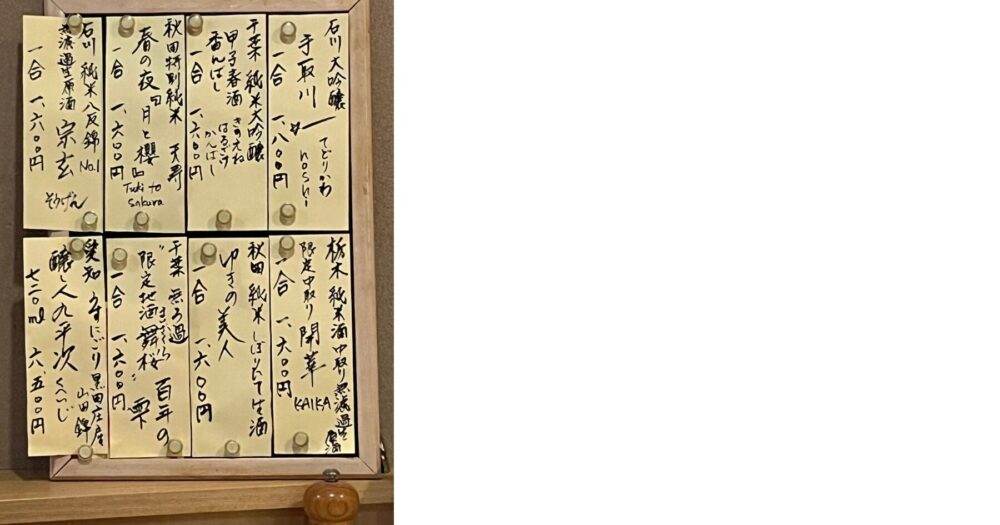 石川 大吟醸
手取川
てどりかわ
一合 一、八〇〇円
千葉 純米大吟醸
甲子春酒
香んばし
きのえね
はるざけ
かんばし
一合 一、六〇〇円
秋田特別純米 天寿
春の夜 月と櫻
一合 一、六〇〇円
Tuki to
Sakura
石川 純米 八反錦 No.1
無濾過生原酒 宗玄
そうげん
一合 一、六〇〇円
栃木 純米酒 中取り 無濾過生
原酒
限定中取り 開華
KAIKA
一合 一、六〇〇円
秋田 純米 しぼりたて生酒
ゆきの美人
一合 一、六〇〇円
千葉 無ろ過 百年の
雫
限定地酒 舞桜
一合 一、六〇〇円
愛知 うすにごり 黒田庄産
山田錦
醸し人九平次 くへいじ
七二〇ml 六、五〇〇円